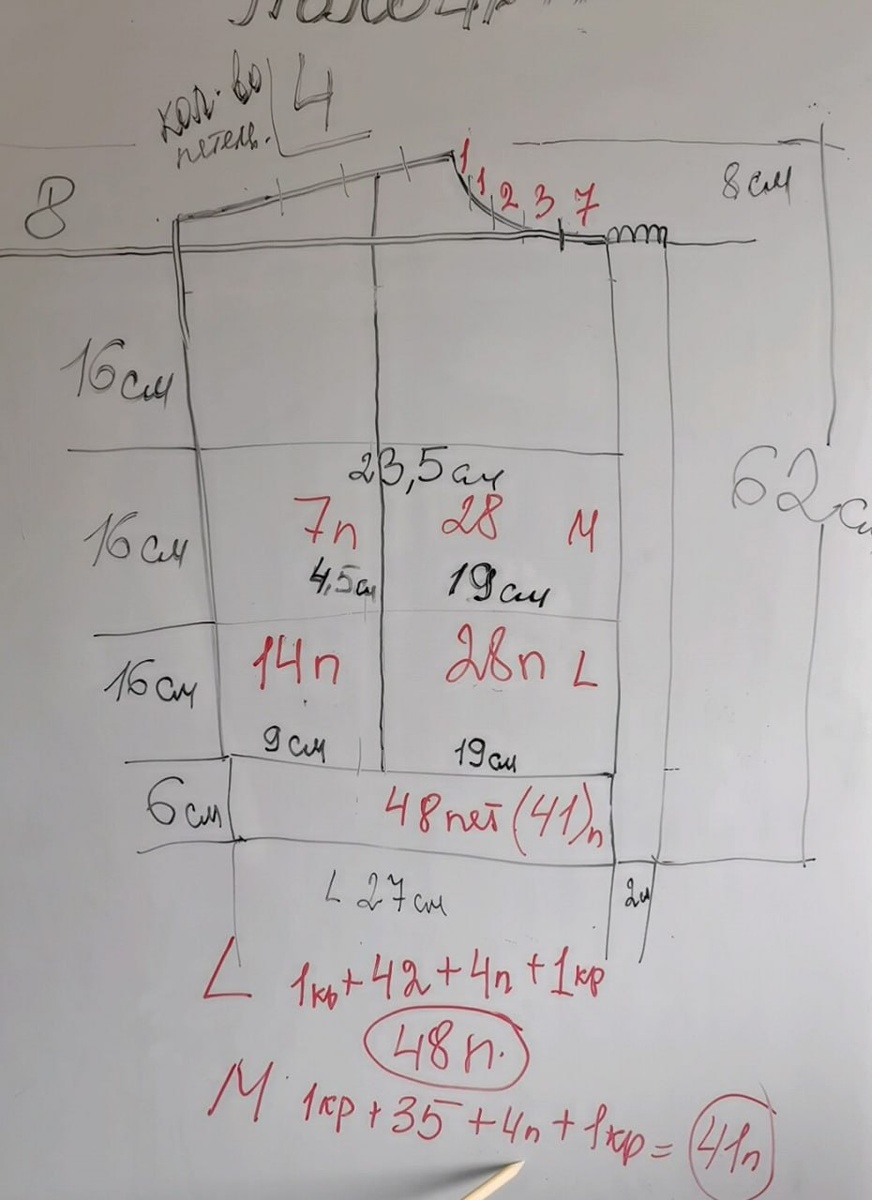 кол-во 4
петель.
1
1 2 3 7
8 см
8
16 см
23,5 см
62 см
7п 28 М
16 см
4,5см 19 см
14п 28п L
16 см
9 см 19 см
6 см
48 пет (41)п
L 27 см
L 1кр + 42 + 4п + 1кр
48 п.
М 1кр + 35 + 4п + 1кр = 41п